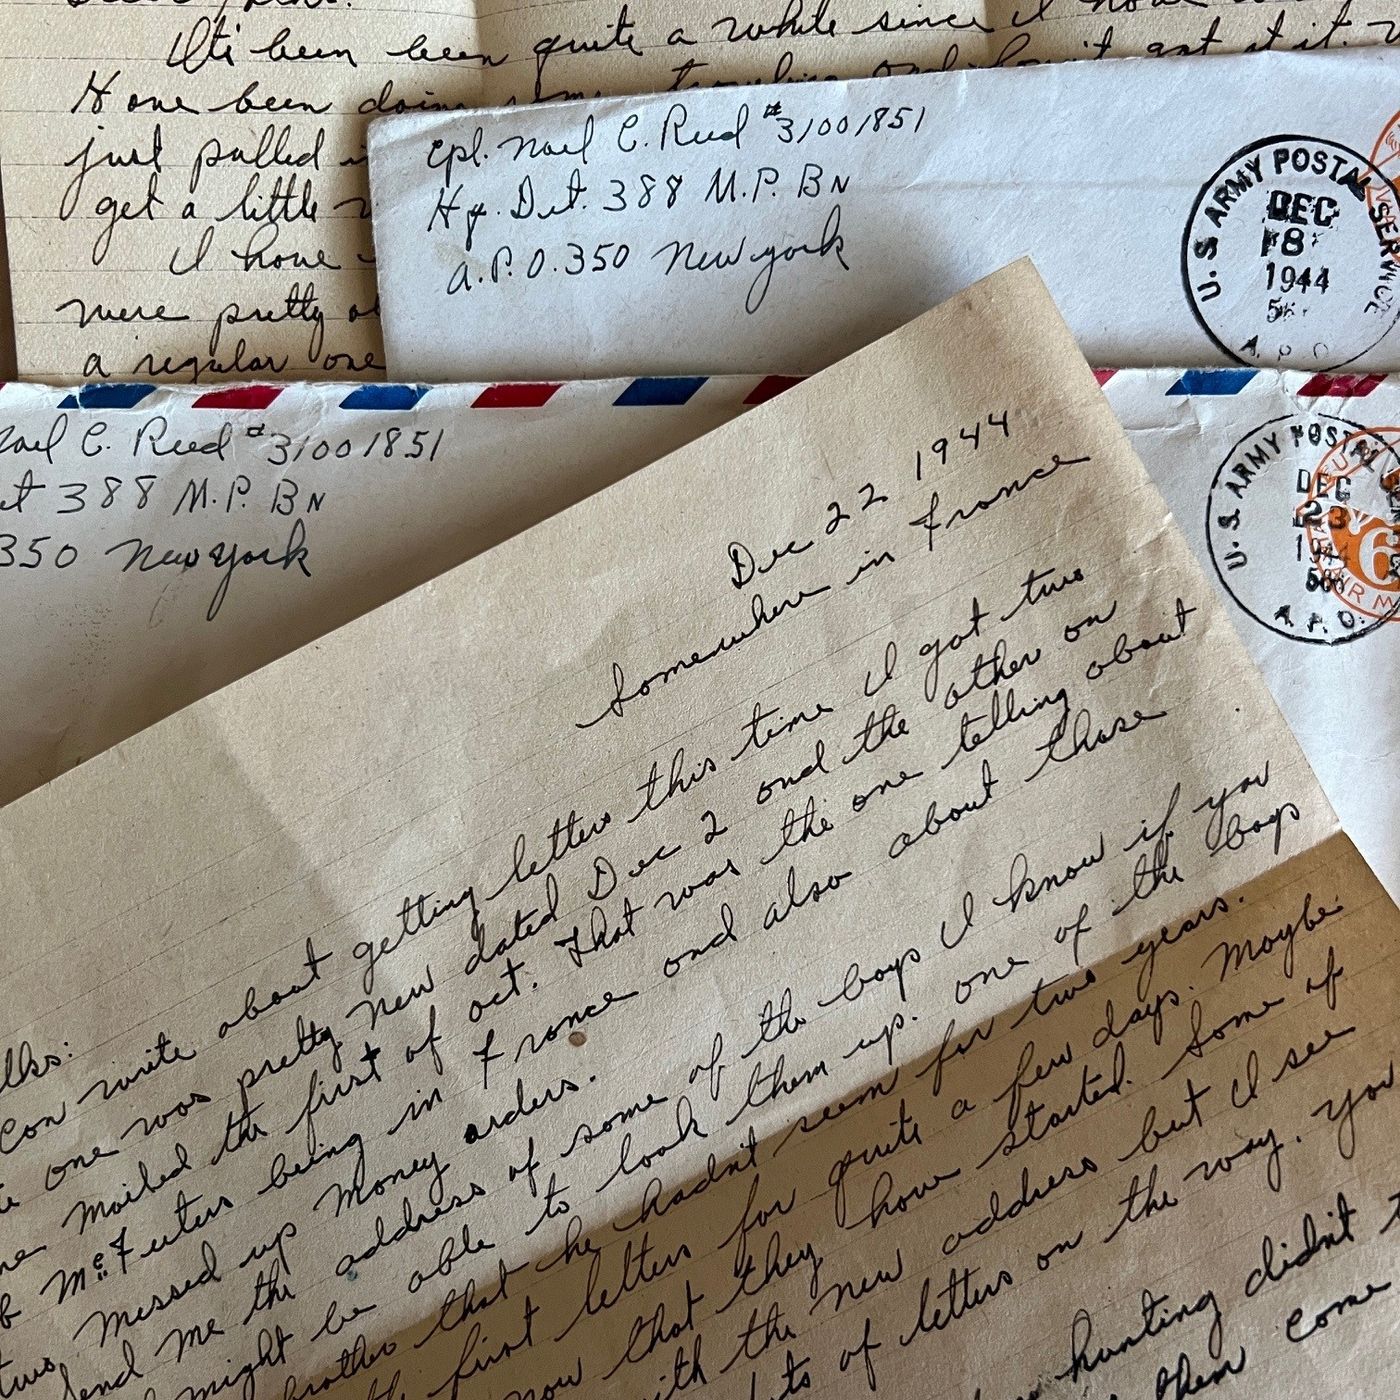 Its been been quite a while since I have
Have been doing some traveling and havn't got at it.
just pulled
get a little
I have
were pretty
a regular one
Cpl. Noel C. Reed #31001851
Hq. Det. 388 M.P. BN
A.P.O. 350 New york
U.S. ARMY POSTAL SERVICE
DEC
18
1944
A.P.O.
Noel C. Reed #31001851
388 M.P. BN
350 New york
U.S. ARMY POSTAL SERVICE
DEC
23
1944
A.P.O.
6
AIR MAIL
Dec 22 1944
Somewhere in France
Con write about getting letters this time I got two
one was pretty new dated Dec 2 and the other on
mailed the first of oct. That was the one telling about
McFeeters being in France and also about those
two messed up money orders.
Send me the address of some of the boys I know if you
might be able to look them up. one of the boys
brother that he hadn't seen for two years.
first letters for quite a few days. Maybe
now that they have started. Some of
with the new address but I see
lots of letters on the way. you
hunting didn't
them come